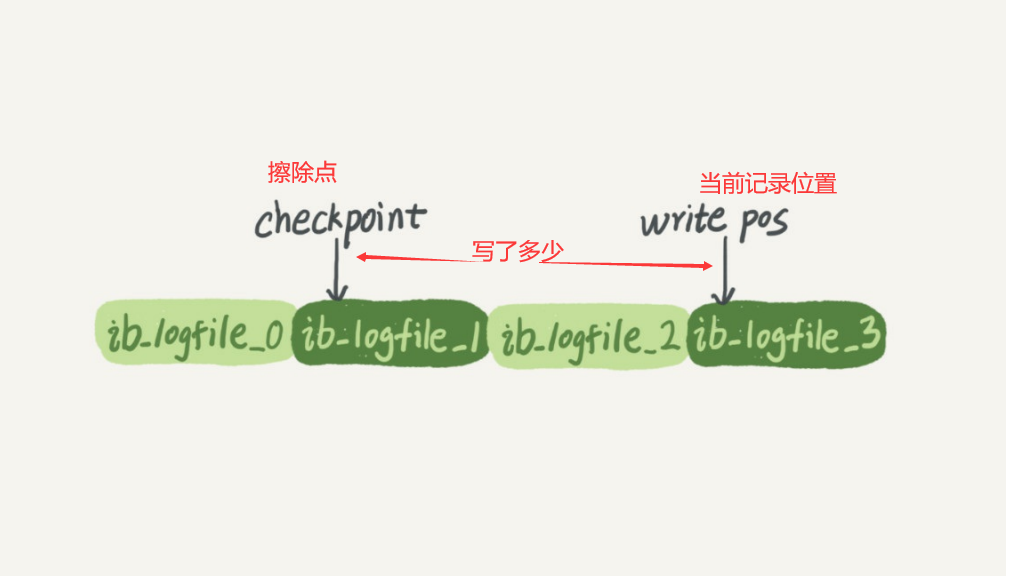 擦除点
当前记录位置
checkpoint
write pos
写了多少
ib_logfile_0
ib_logfile_1
ib_logfile_2
ib_logfile_3